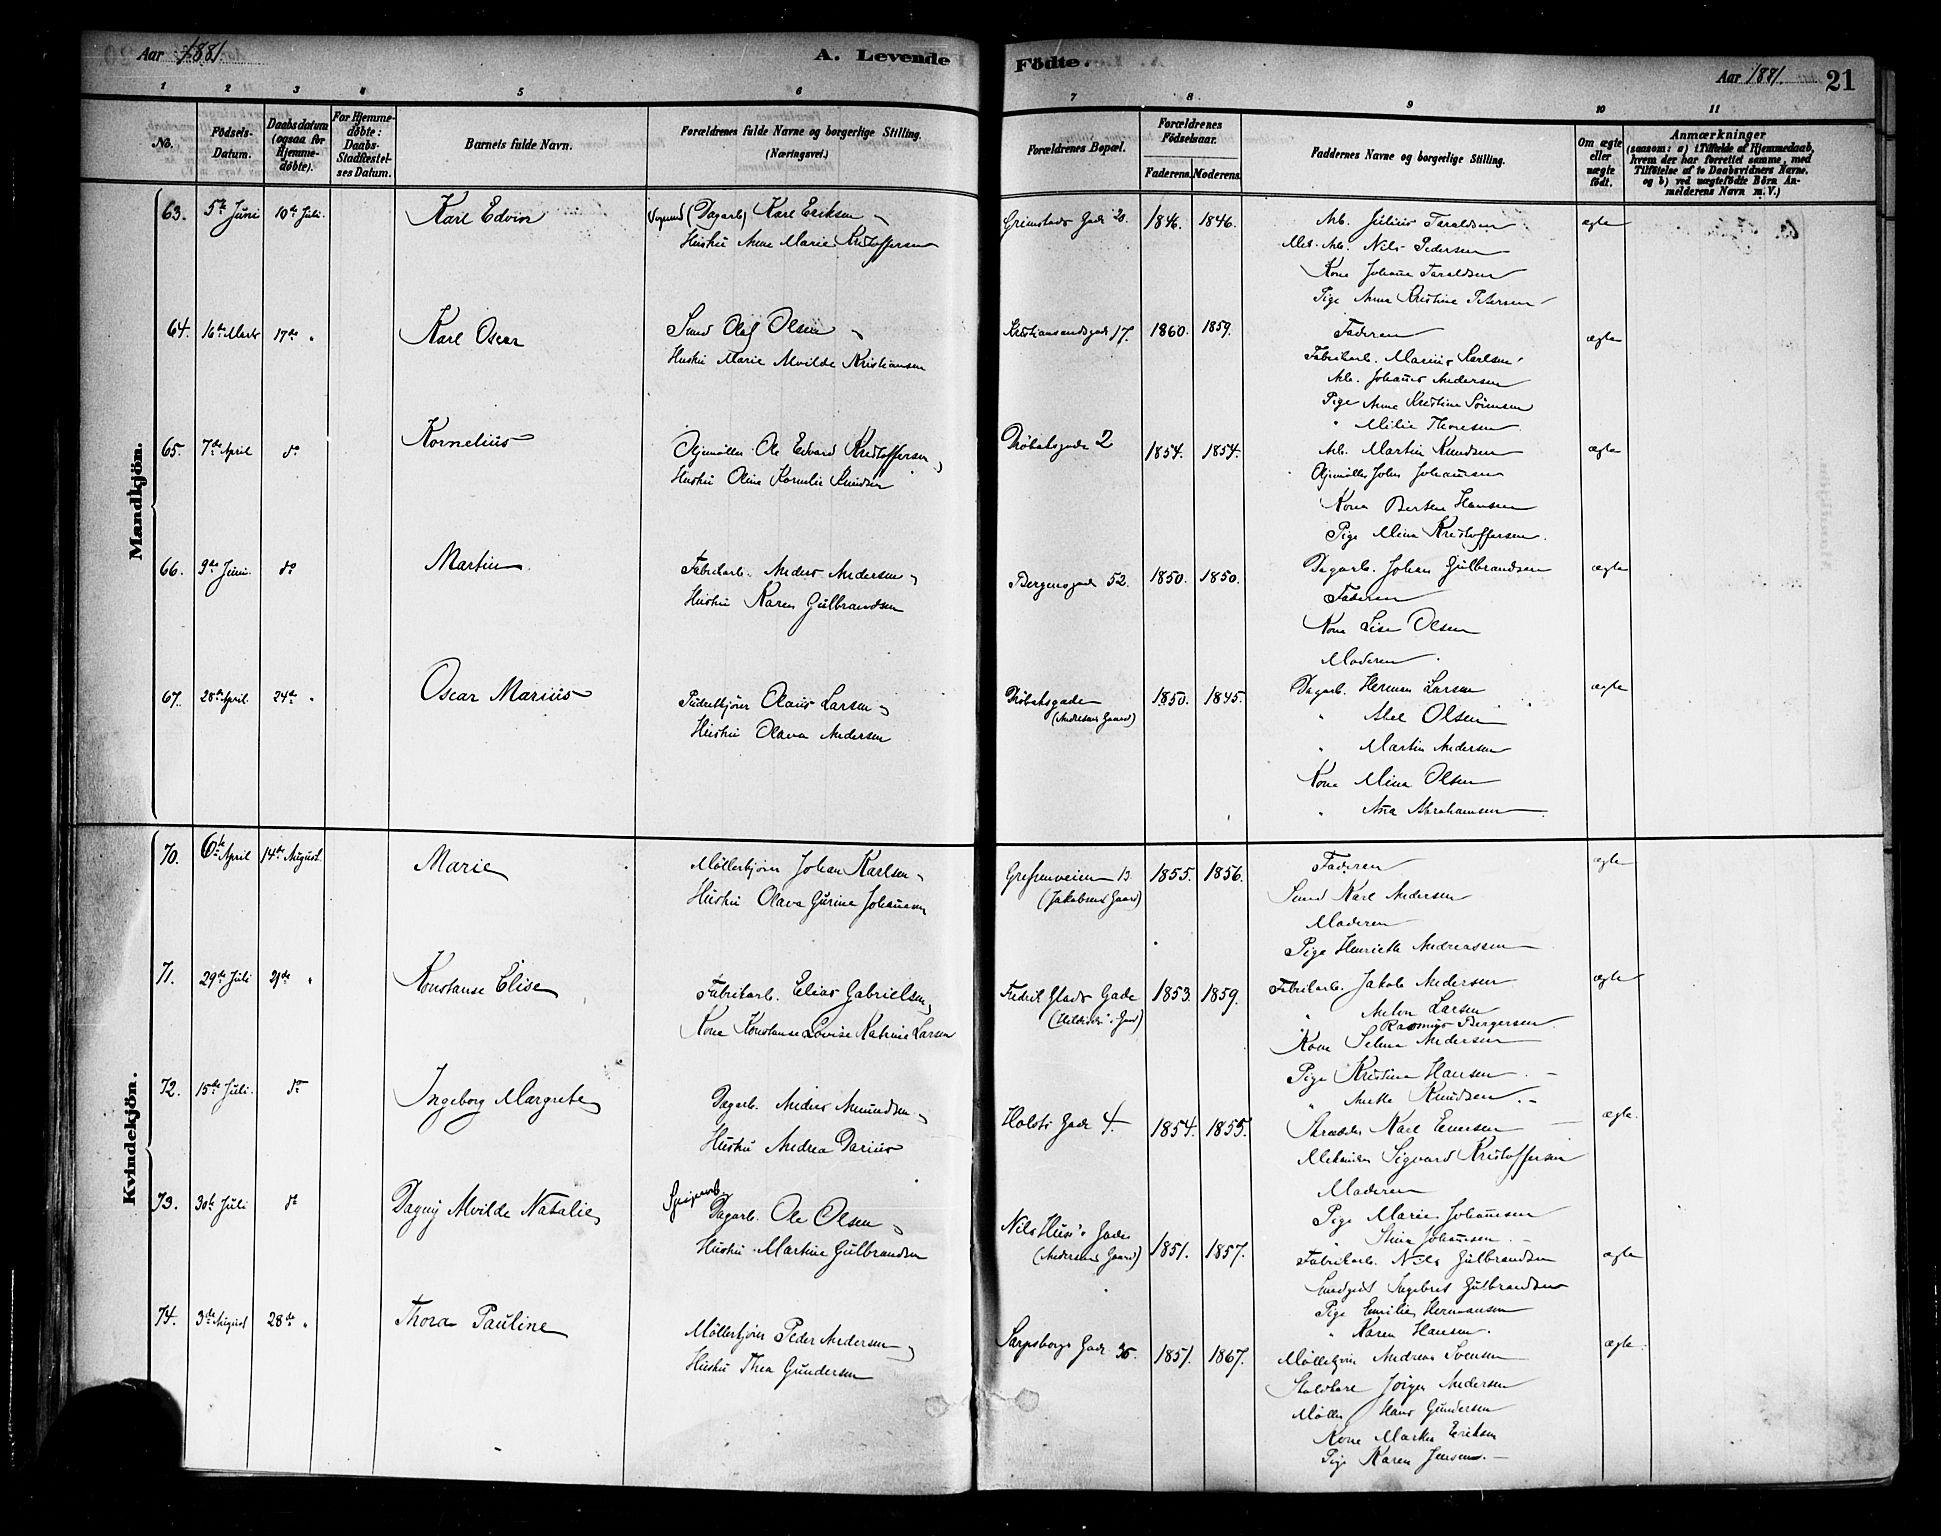 Aar 1881.
A. Levende
Födte.
Aar 1881.
21
1 2 3 4 5 6 7 8 9 10 11
No.
Födsels-Datum.
Daabsdatum (ogsaa for Hjemme-døbte).
For Hjemme-døbte: Daabs-Stadfæstel-ses Datum.
Barnets fulde Navn.
Forældrenes fulde Navne og borgerlige Stilling. (Næringsvei.)
Forældrenes Bopæl.
Forældrenes Födselsaar.
Faderens. Moderens.
Faddernes Navne og borgerlige Stilling.
Om ægte eller uægte födt.
Anmærkninger
(saasom: a) i Tilfælde af Hjemmedaab, hvem der har forrettet samme, med Tilföielse af to Daabsvidners Navne, og b) ved uægtefödte Börn An-melderens Navn m. V.)
Mandkjön.
63. 5te Juni 10de Juli Karl Edvin (Dagarb.) Karl Eriksen
Hustru Anne Marie Kristoffersen
Grimstads Gade 20. 1846. 1846.
Arb. Julius Taraldsen ægte
Arb. Nils Pedersen
Kone Johane Taraldsen
Pige Anna Kristine Petersen
64. 16de Marts 17de " Karl Oscar Smed Olaf Olsen
Hustru Marie Alvilde Kristiansen
Kristiansandsgade 17. 1860. 1859.
Faderen ægte
Fabrikarb. Marius Karlsen
Arb. Johannes Andersen
Pige Anne Kristine Sörensen
" Milie Thoresen
65. 7de April do Kornelius Oljemöller Ole Edvard Kristoffersen
Hustru Oline Kornelie Knudsen
Dröbaksgade 2 1854. 1854.
Arb. Martin Knudsen ægte
Oljemöller John Johansen
Kone Berthe Hansen
Pige Mina Kristoffersen.
66. 9de Juni. do Martin. Fabrikarb. Anders Andersen
Hustru Karen Gulbrandsen
Bergensgade 52. 1850. 1850.
Dagarb. Johan Gulbrandsen ægte
Faderen
Kone Lise Olsen
Moderen.
67. 28de April. 24de " Oscar Marius Olaus Larsen
Hustru Olava Andersen
Dröbaksgade
(Andresens Gaard)
1850. 1845.
Dagarb. Herman Larsen ægte
" Abel Olsen
" Martin Andersen
Kone Mina Olsen
" Ana Abrahamsen
Kvindekjön.
70. 6te April 14de August. Marie Möllerkjörer Johan Karlsen
Hustru Olava Gurine Johansen
Grefsenveien 13
(Jakobsens Gaard)
1855. 1856.
Faderen ægte
Smed Karl Andersen
Moderen
Pige Henriette Andreassen
71. 29de Juli 21de " Konstanse Elise Fabrikarb. Elias Gabrielsen
Kone Konstanse Lovise Katrine Larsen
Fredrik Glads Gade
1853. 1859.
Fabrikarb. Jakob Andersen ægte
" Anton Larsen
Rasmus Bergersen
Kone Selma Andersen
Pige Kristine Hansen.
" Anette Knudsen.
72. 15de Juli. do Ingeborg Margrete Dagarb. Anders Amundsen
Hustru Andrea Darius
Holsts Gade 4. 1854. 1855.
Skrædder Karl Enersen ægte.
Mekaniker Sigvard Kristoffersen
Moderen
Pige Marie Johannesen
" Stine Johannesen.
73. 30te Juli do Dagny Alvilde Natalie Dagarb. Ole Olsen
Hustru Martine Gulbrandsen
Nils Hus's Gade
(Andersens Gaard)
1851. 1857.
Fabrikarb. Nils Gulbrandsen ægte
Ingebret Gulbrandsen
Pige Emilie Hermansen
" Karen Hansen.
74. 3de August 28de " Thora Pauline Möllerkjörer Peder Andersen
Hustru Thea Gundersen
Sarpsborgs Gade 36. 1851. 1867.
Möllerkjörer Andreas Svensen ægte.
Jörgen Andersen
Möller Hans Gundersen
Kone Marthe Eriksen
Pige Karen Jensen.